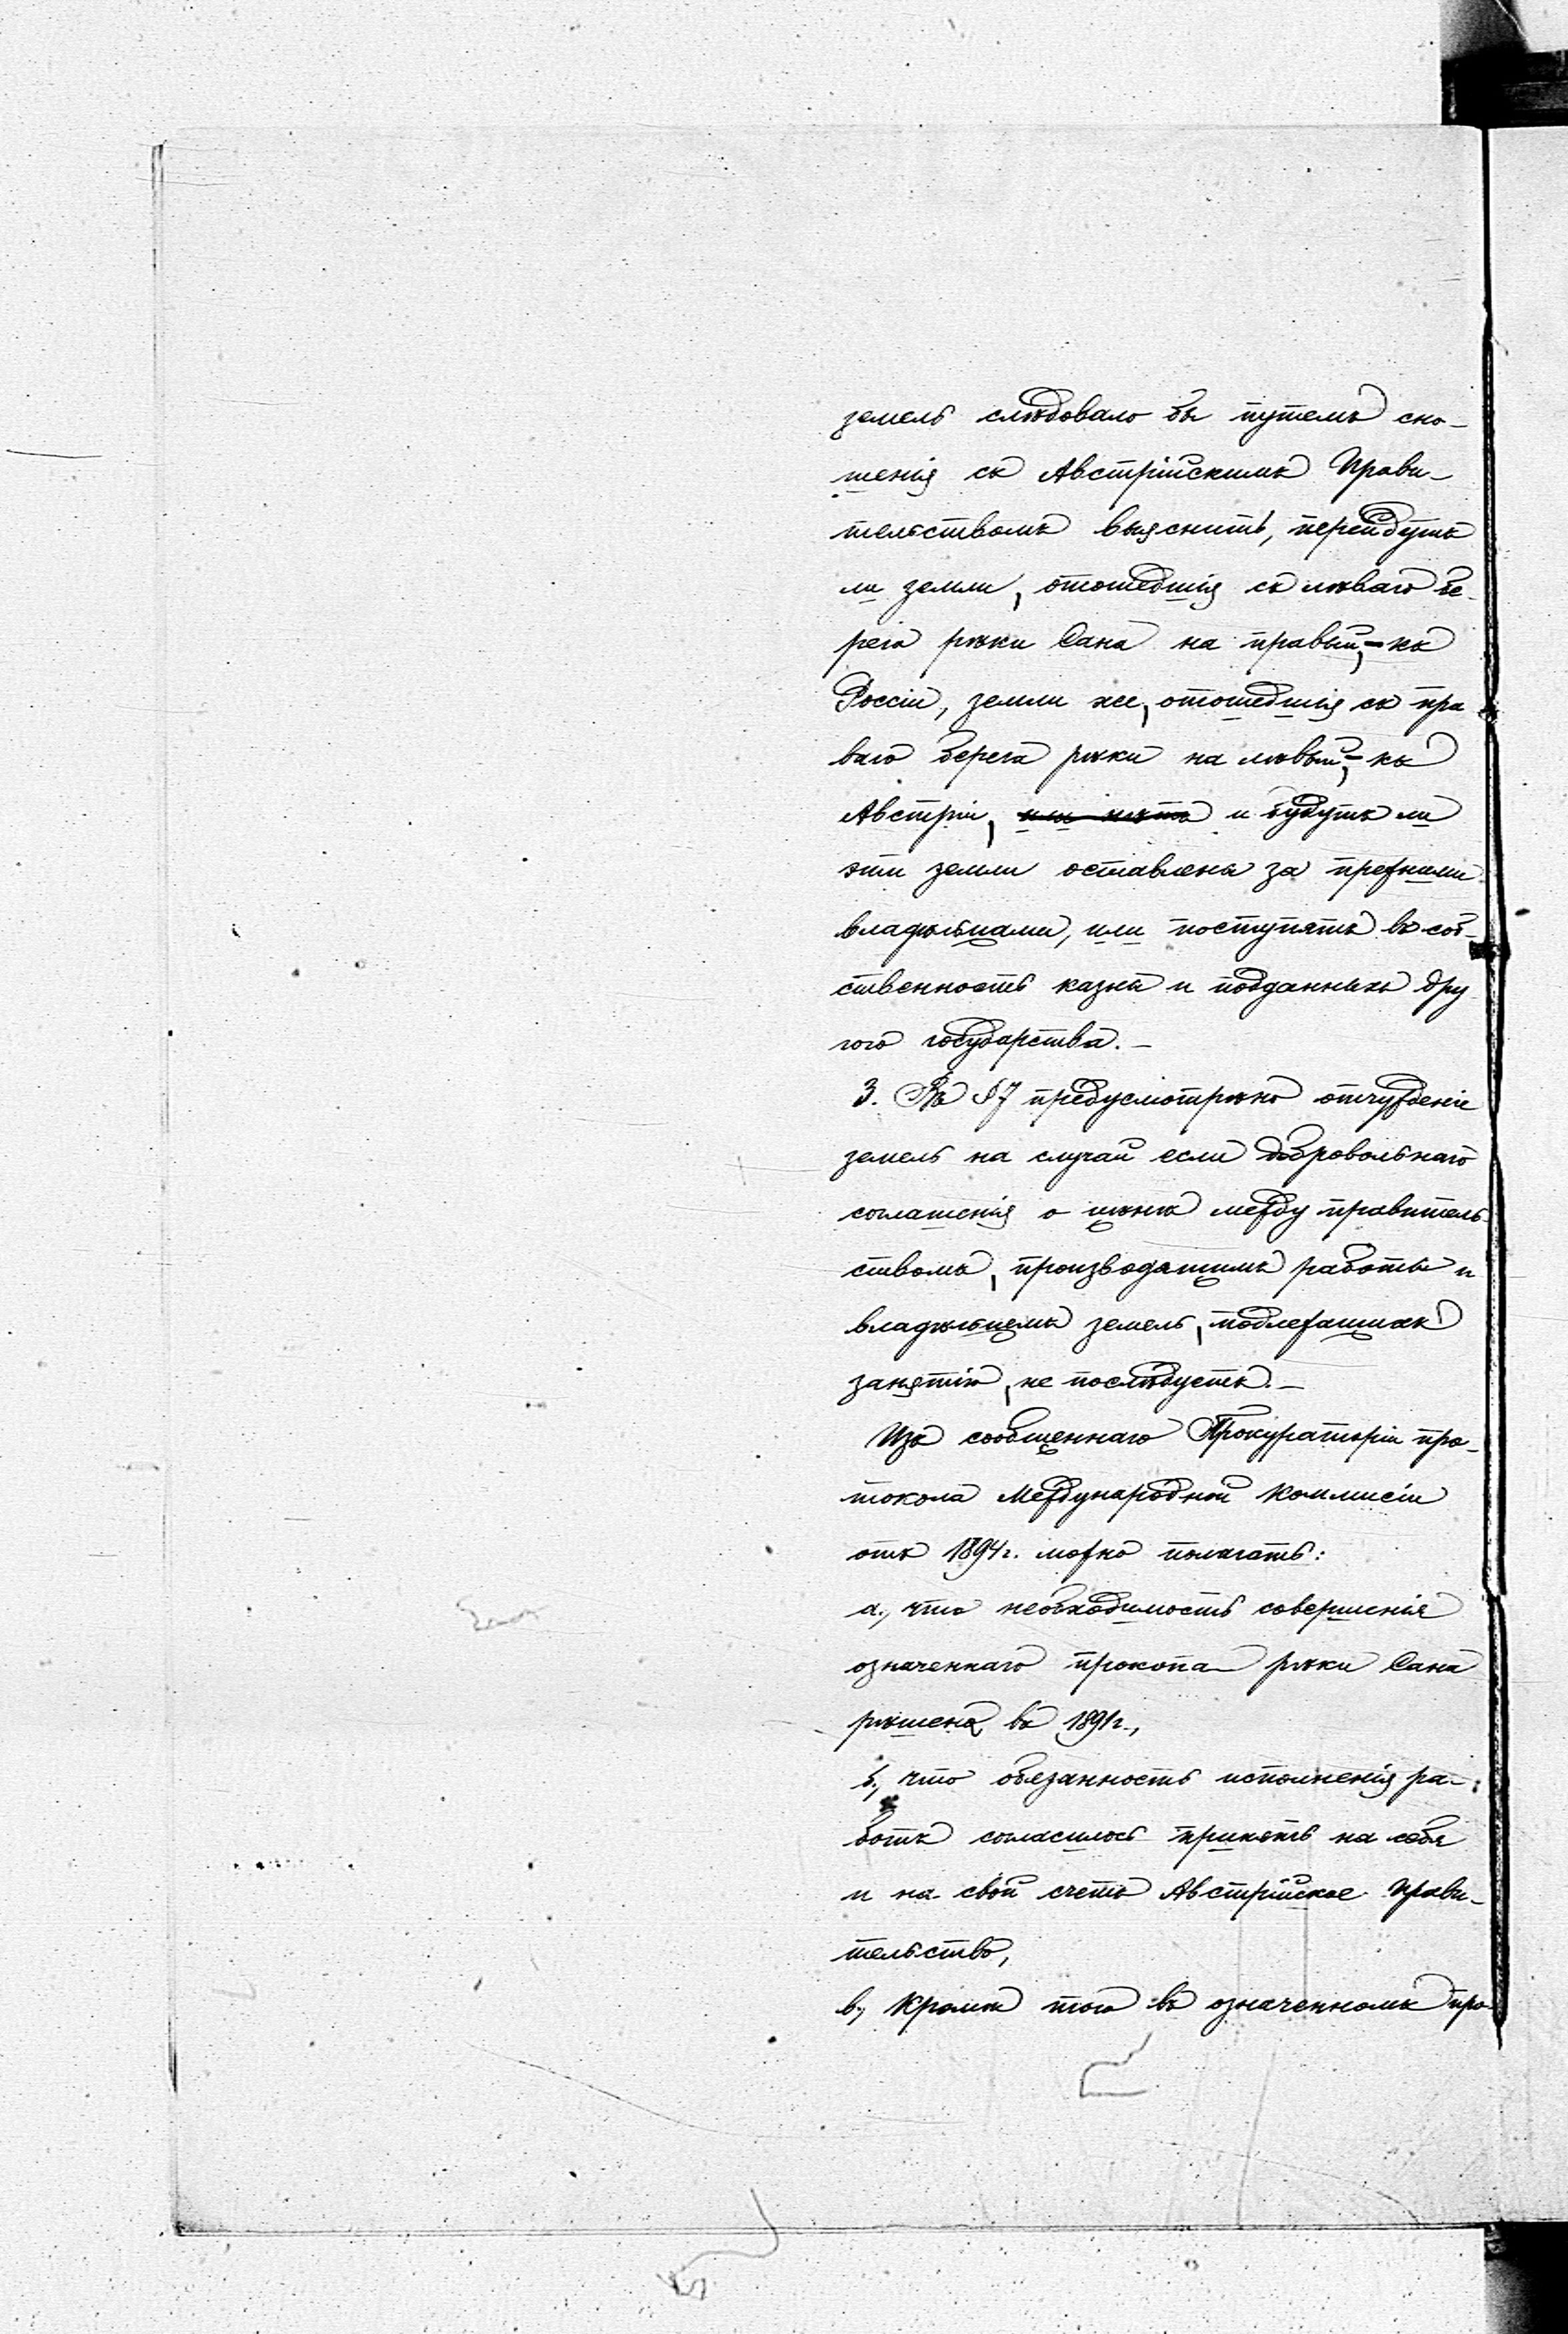 земель слѣдовало бы путемъ сно-
шенія съ Австрійскимъ Прави-
тельствомъ выяснить, перейдутъ
ли земли, отошедшія съ лѣваго бе-
рега рѣки Сана на правый, - къ
Россіи, земли же, отошедшія съ пра
ваго берега рѣки на лѣвый, - къ
Австріи, или нѣтъ и будутъ ли
эти земли оставлены за прежними
владѣльцами, или поступятъ въ соб-
ственность казны и подданныхъ дру
гого государства. -
3. Въ §7 предусмотрѣно отчужденіе
земель на случай если добровольнаго
соглашенія о цѣнѣ между правитель
ствомъ, производящимъ работы и
владѣльцемъ земель, подлежащихъ
занятію, не послѣдуетъ. -
Изъ сообщеннаго Прокураторіи про-
токола Международной Коммисіи
отъ 1894 г. можно полагать:
а., что необходимость совершенія
означеннаго прокопа рѣки Сана
рѣшена въ 1891 г.,
б., что обязанность исполненія ра-
ботъ согласилось принять на себя
и на свой счетъ Австрійское Прави-
тельство,
в., Кромѣ того въ означенномъ про